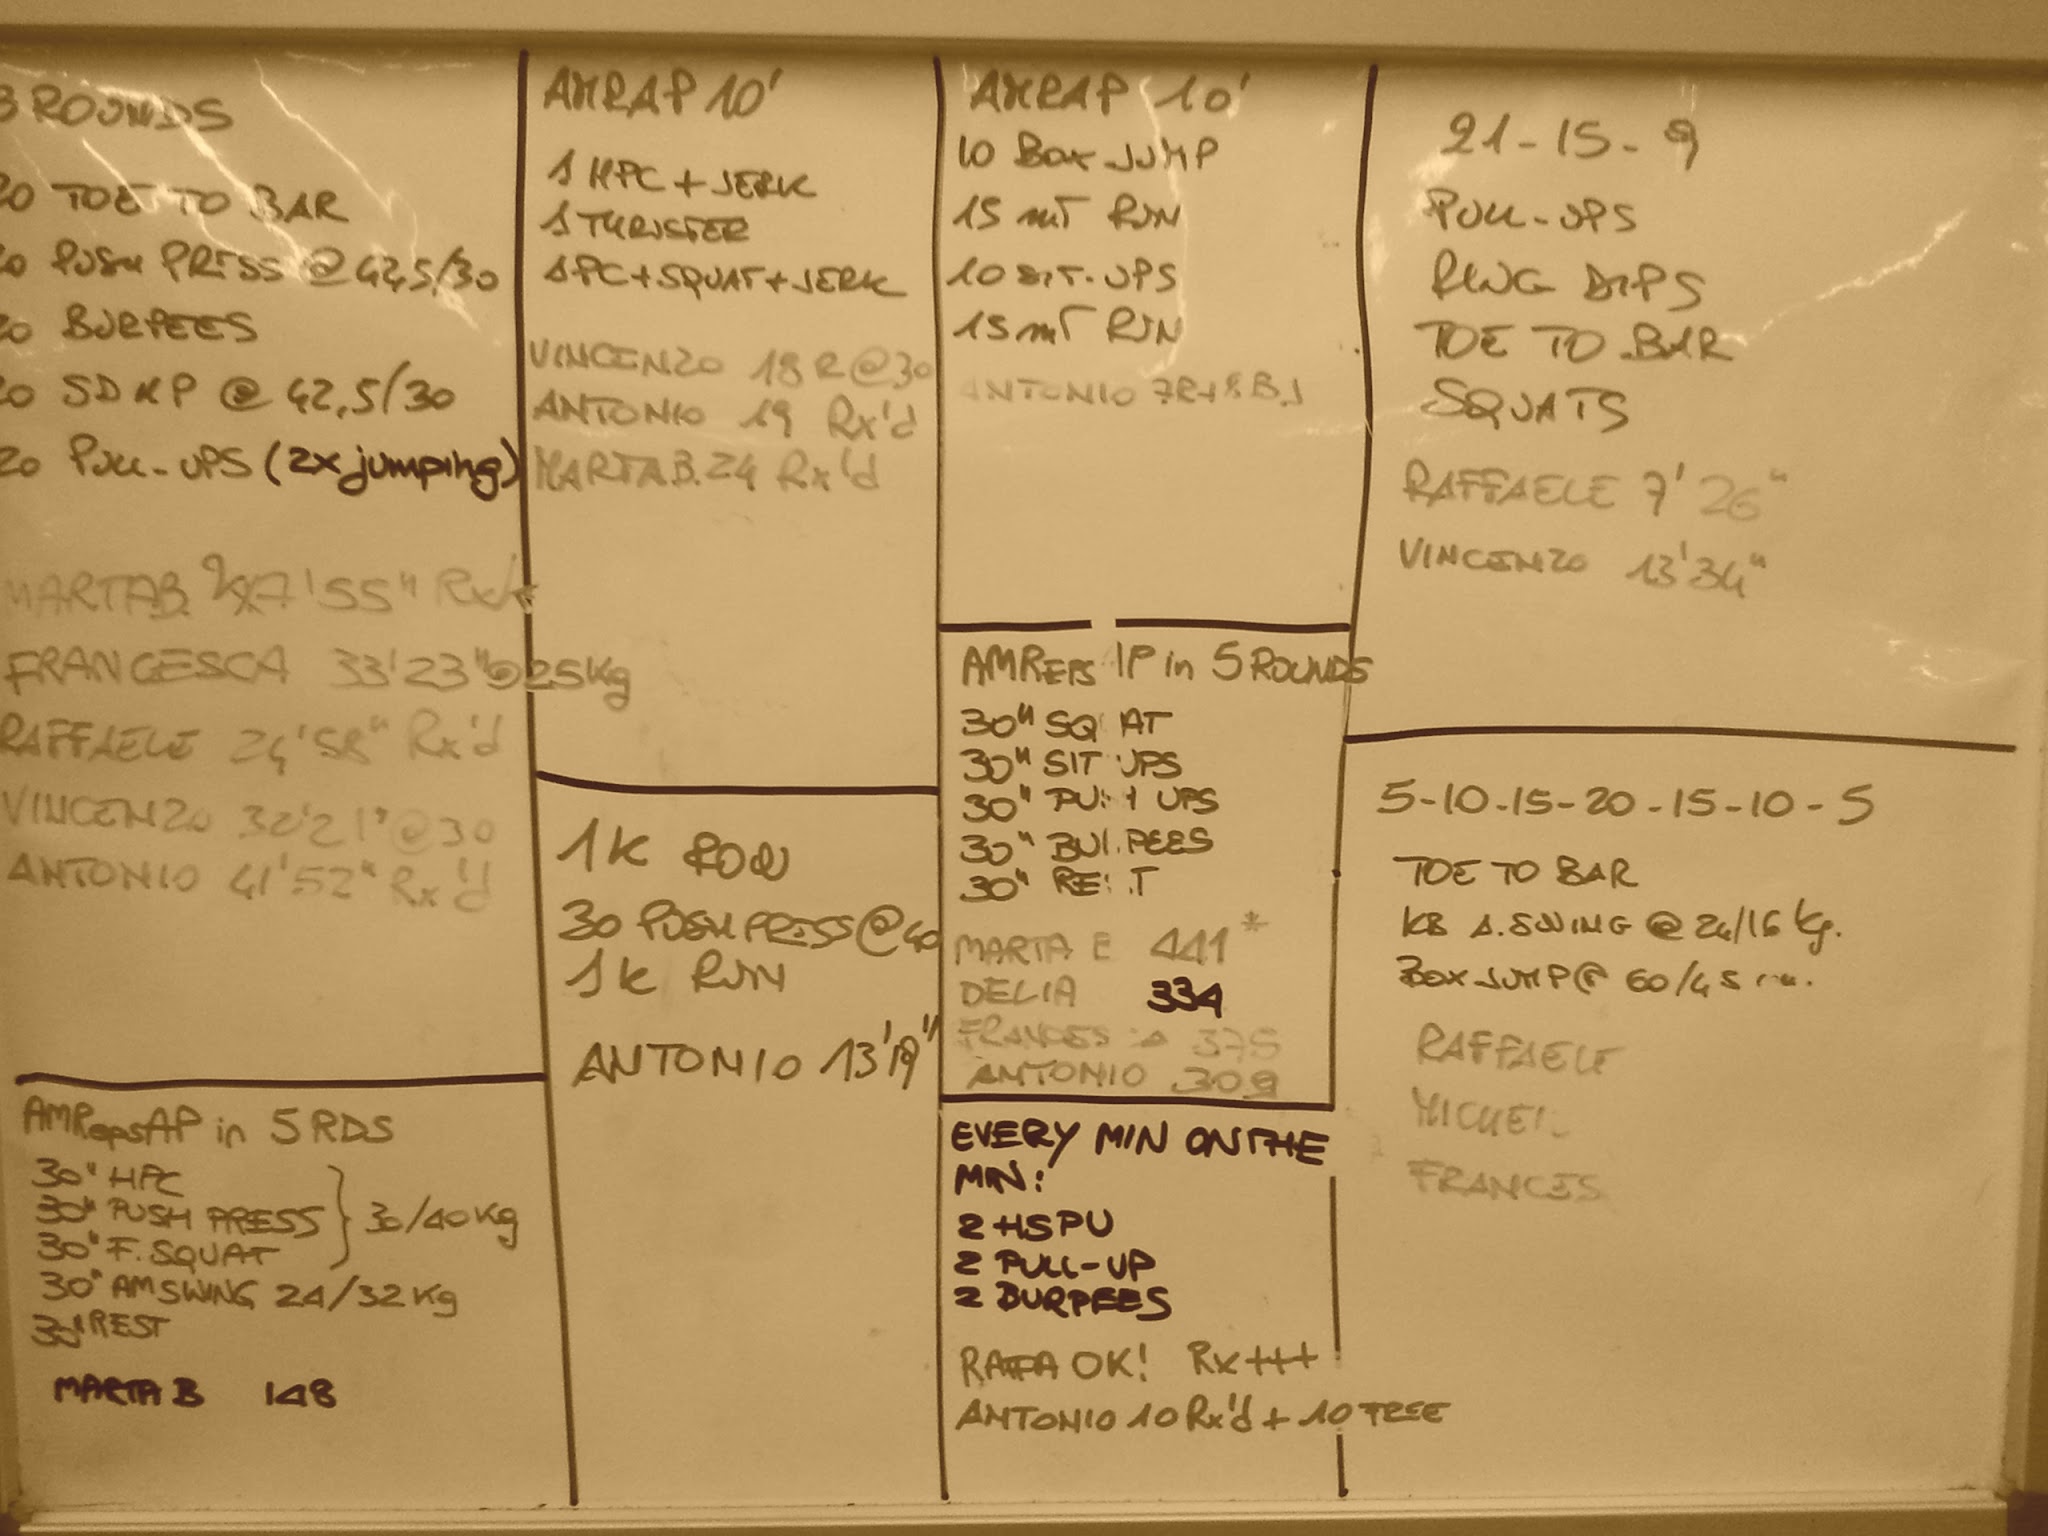 3 ROUNDS
20 TOE TO BAR
20 PUSH PRESS @ 42,5/30
20 BURPEES
20 SDHP @ 42,5/30
20 PULL-UPS (2x jumping)
MARTA B. 7'55" Rx'd
FRANCESCA 33'23" @ 25Kg
RAFFAELE 24'58" Rx'd
VINCENZO 32'21" @30
ANTONIO 41'52" Rx'd
AMRepsAP in 5 RDS
30" HPC
30" PUSH PRESS } 30/40 Kg
30" F. SQUAT
30" AM SWING 24/32 Kg
30" REST
MARTA B 148
AMRAP 10'
1 HPC + JERK
1 THRUSTER
1 PC + SQUAT + JERK
VINCENZO 18 R @30
ANTONIO 19 Rx'd
MARTA B. 24 Rx'd
1K ROW
30 PUSH PRESS @ 40
1K RUN
ANTONIO 13'19"
AMRAP 10'
10 BOX JUMP
15 mT RUN
10 SIT-UPS
15 mT RUN
ANTONIO 7R+8 B.J
AMREPS IP in 5 ROUNDS
30" SQ AT
30" SIT UPS
30" PUSH UPS
30" BURPEES
30" REST
MARTA E 441*
DELIA 334
FRANCESCA 375
ANTONIO 309
EVERY MIN ON THE
MIN:
2 HSPU
2 PULL-UP
2 BURPEES
RAFFA OK! Rx+++
ANTONIO 10 Rx'd + 10 FREE
21-15-9
PULL-UPS
RING DIPS
TOE TO BAR
SQUATS
RAFFAELE 7'26"
VINCENZO 13'34"
5-10-15-20-15-10-5
TOE TO BAR
KB A. SWING @ 24/16 Kg.
BOX JUMP @ 60/45
RAFFAELE
MICHEL
FRANCES